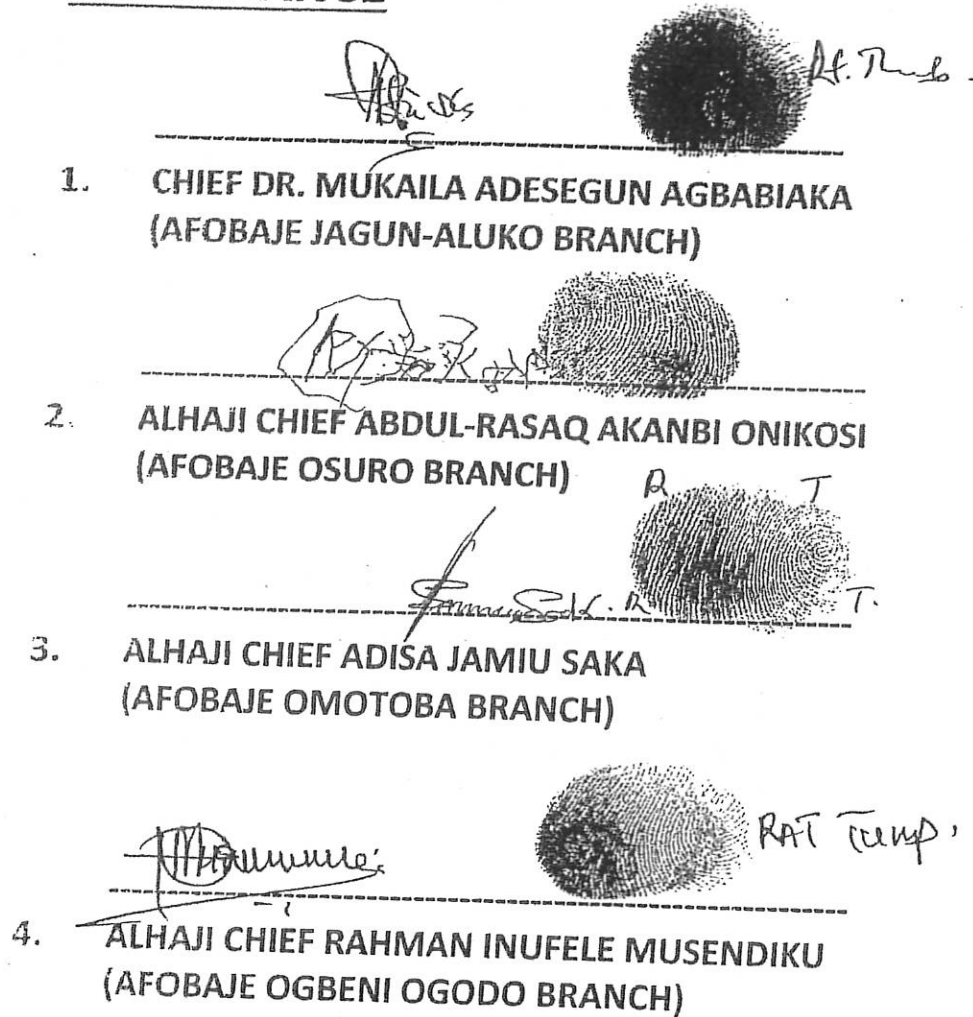 Rt. Thumb
1. CHIEF DR. MUKAILA ADESEGUN AGBABIAKA
(AFOBAJE JAGUN-ALUKO BRANCH)
2. ALHAJI CHIEF ABDUL-RASAQ AKANBI ONIKOSI
(AFOBAJE OSURO BRANCH)
R T
R T.
3. ALHAJI CHIEF ADISA JAMIU SAKA
(AFOBAJE OMOTOBA BRANCH)
4. ALHAJI CHIEF RAHMAN INUFELE MUSENDIKU
(AFOBAJE OGBENI OGODO BRANCH)